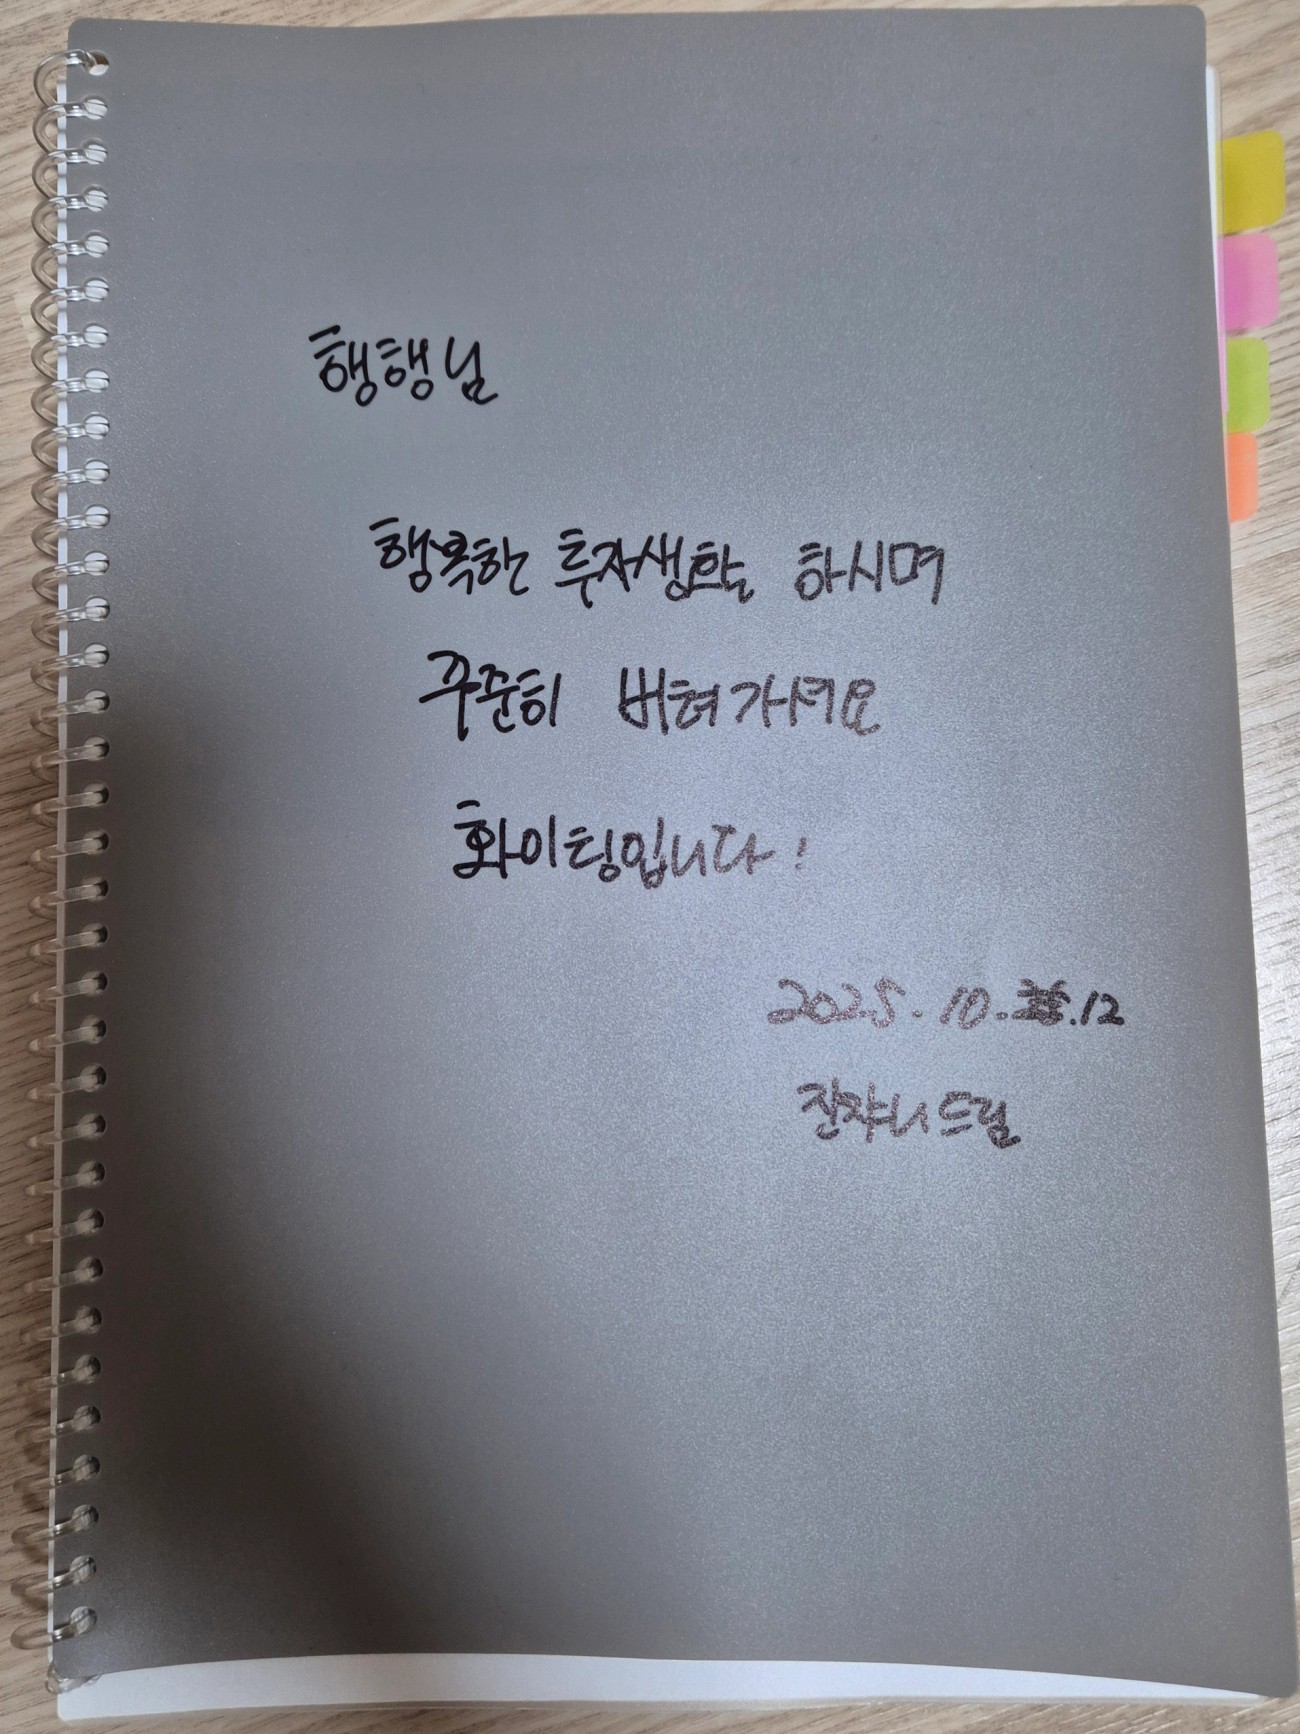 행행님
행복한 투자생활 하시며
꾸준히 버텨가셔요
화이팅입니다!
2025.10. .12
잔쟈니 드림